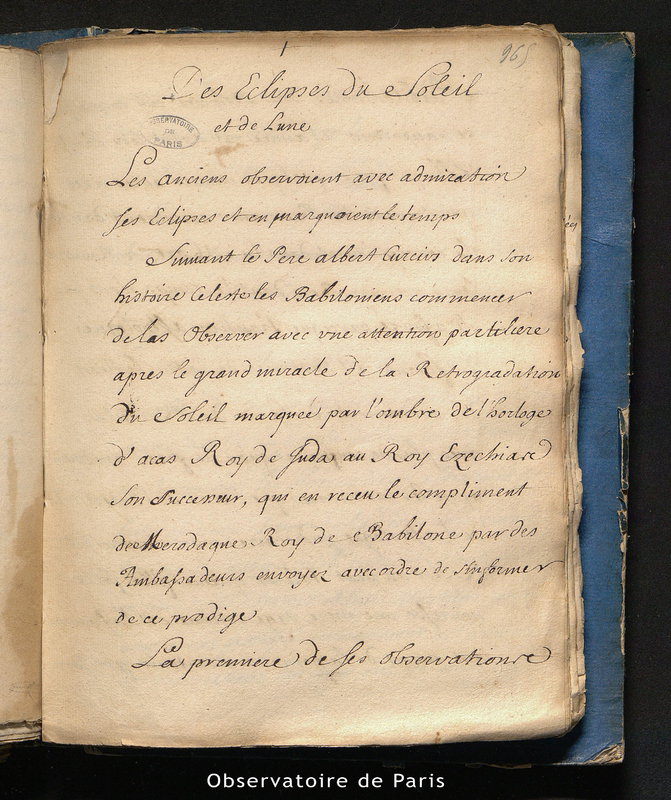 1
965
Des Eclipses du Soleil
et de Lune
OBSERVATOIRE
DE
PARIS
Les anciens observoient avec admiration
ses Eclipses et en marquoient le temps
Suivant le Pere albert Curcius dans son
histoire Celeste les Babiloniens commencer
de las Observer avec vne attention particliere
apres le grand miracle de la Retrogradation
du Soleil marquée par l'ombre de l'horloge
d'acas Roy de Juda au Roy Ezechias
son Successeur, qui en receu le compliment
de Merodaque Roy de Babilone par des
Ambassadeurs envoyez avec ordre de s'informer
de ce prodige
La premiere de ses observations
Observatoire de Paris